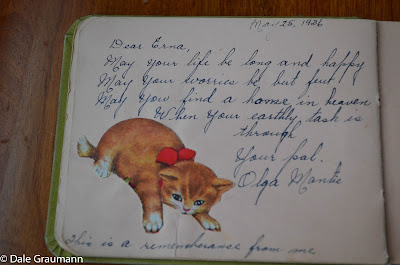 May 25, 1926
Dear Erna,
May your life be long and happy
May your worries be but few
May you find a home in heaven
When your earthly task is
through
Your pal.
Olga Mantie
This is a rememberance from me
© Dale Graumann